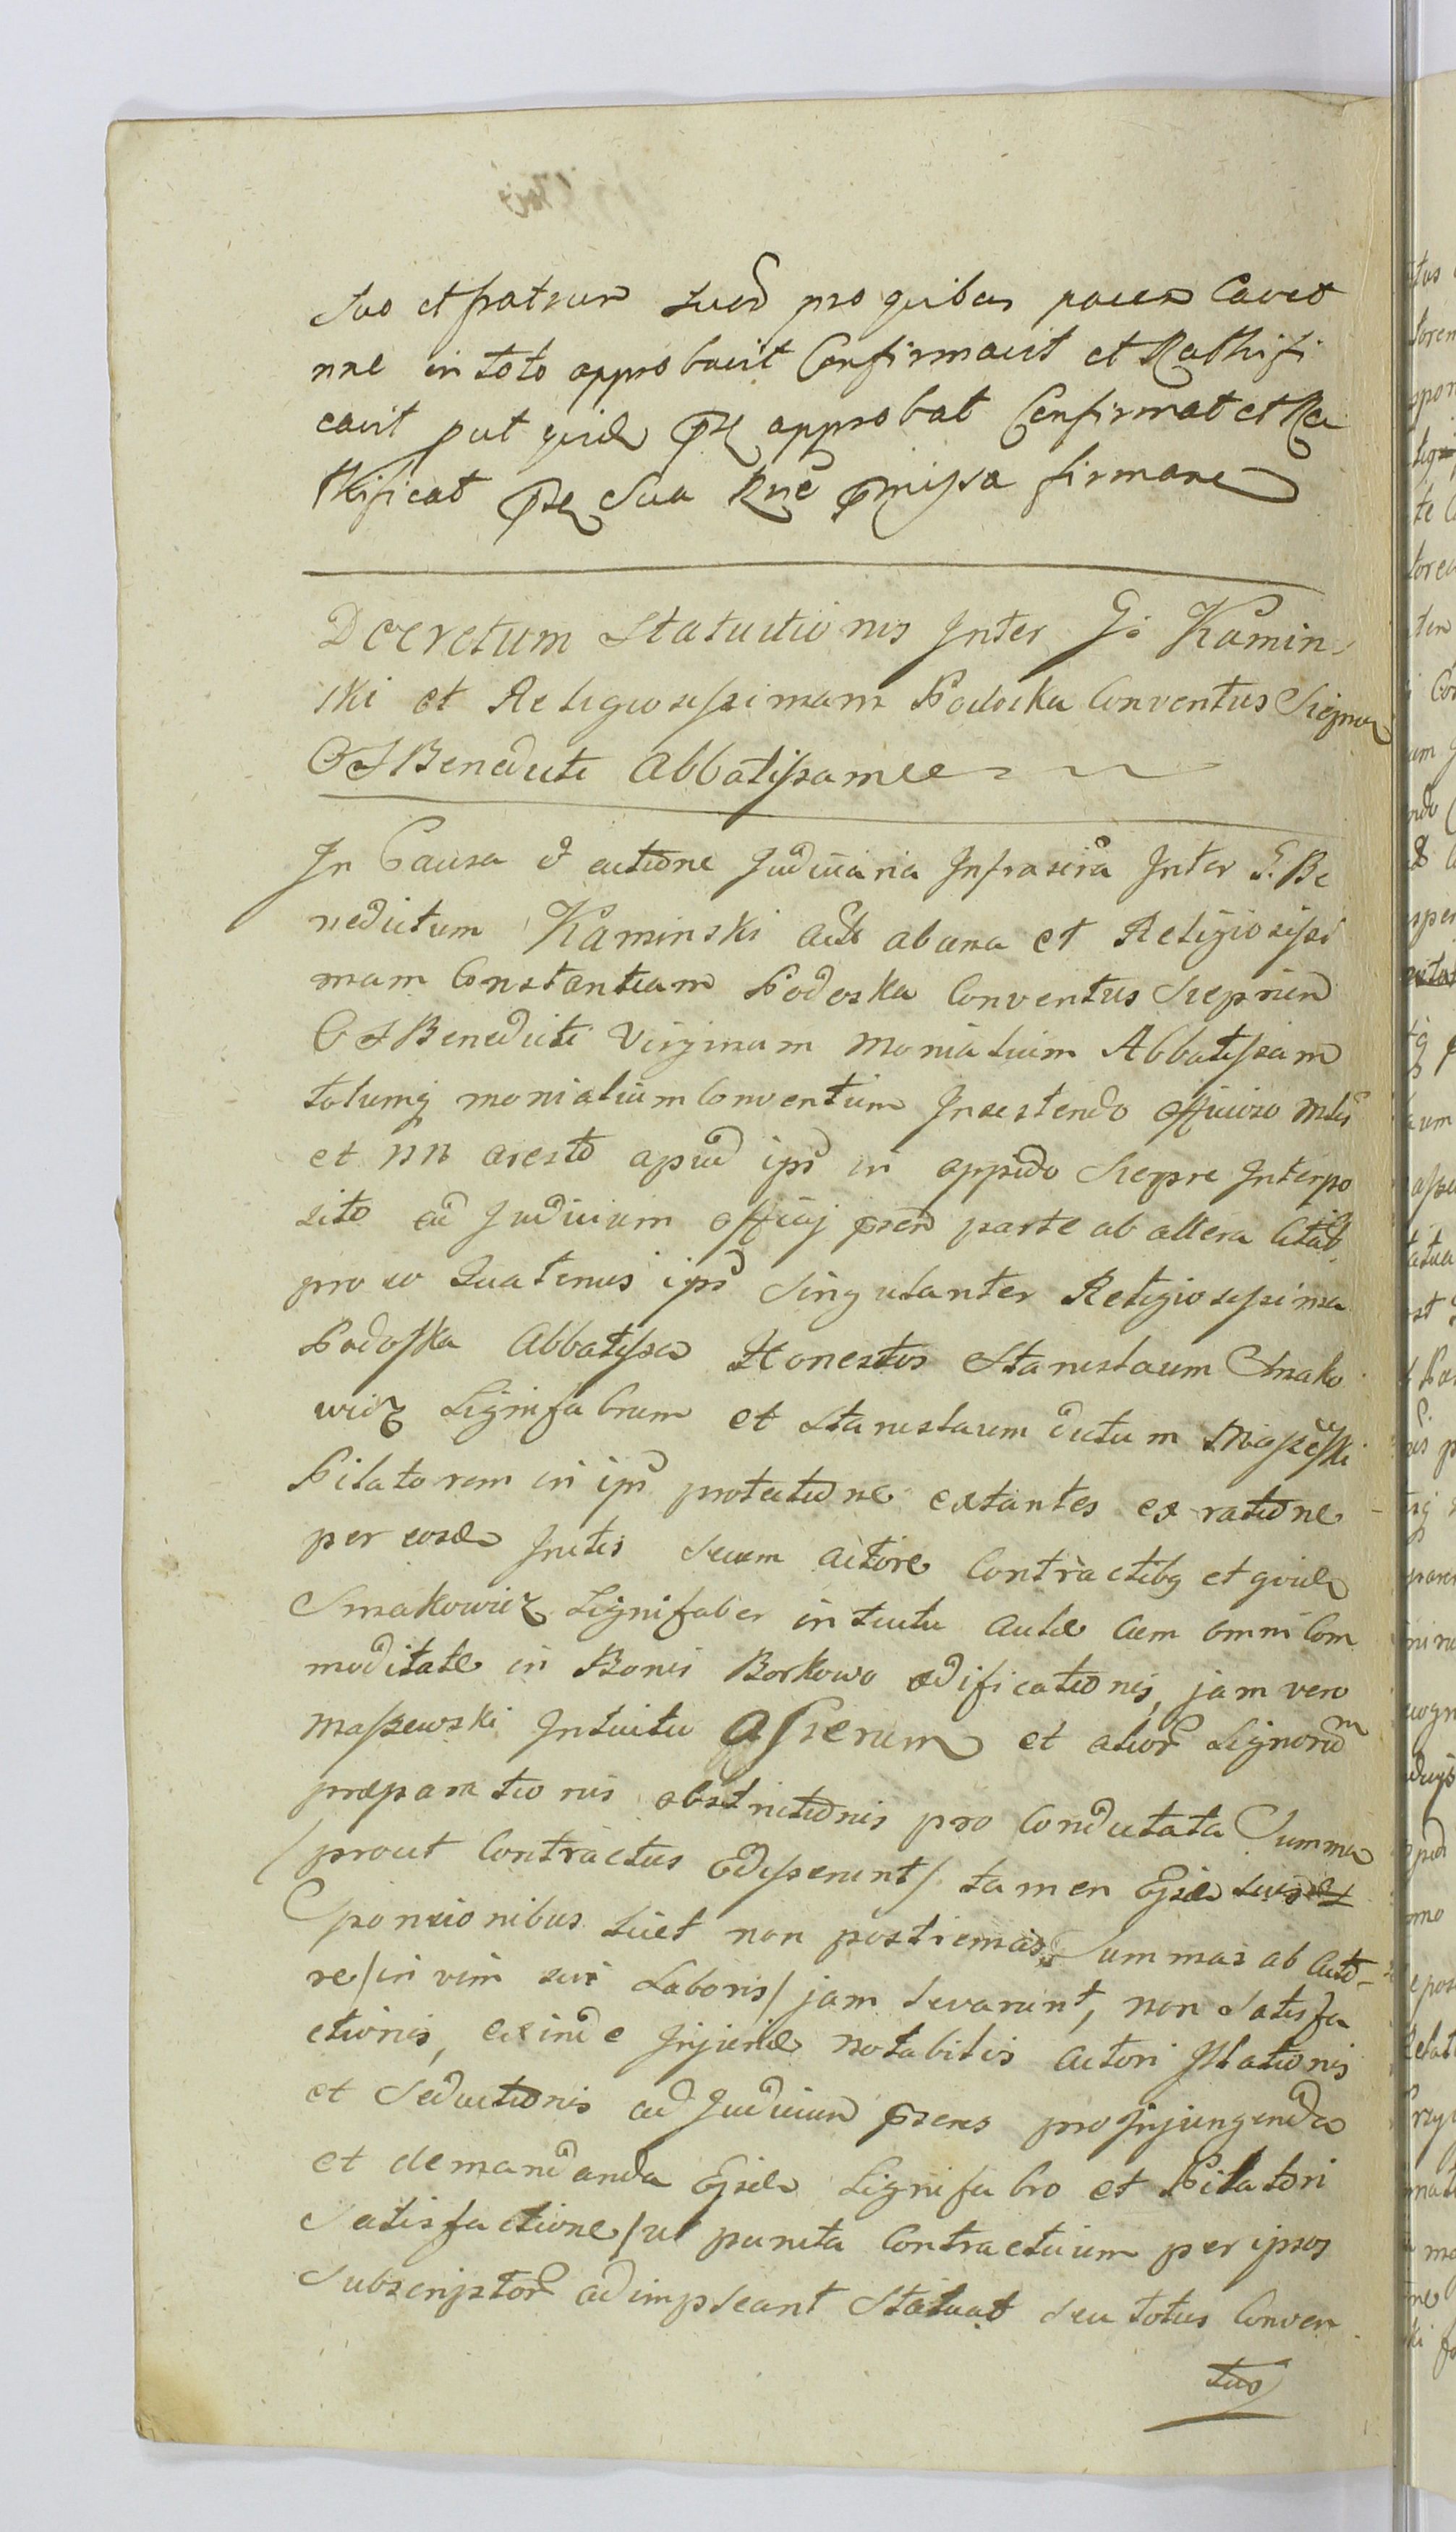 suo et fratrum suor pro quibus pariter Caveo
nne in toto approbavit Confirmavit et Rathifi
cavit put quid approbat Confirmat et Ra
thificat Sua pmissa firmare
Decretum Statuitionis Inter G: Kamin
ski et Religiosissimam Podoska Conventus Siepr
O S Benedicti Abbatissam
In Causa & actione Judiciaria Infrascra Inter G. Be
nedictum Kaminski ab una et Religiosissi
mam Constantiam Podoska Conventus Sieprien
O S Benedicti Virginum Monialium Abbatissam
totumq monialium Conventum Insistendo officioso
et nn aresto apud ips in oppido Siepre Interpo
sito ad Judicium officij psen parte ab altera Citat
pro eo Quatenus ips Singulanter Religiosissima
Podoska Abbatissa Honestos Stanislaum Smako
wicz Lignifabrum et Stanislaum dictum
Pilatorem in ips protectione extantes ex ratione
per eosd Initis Secum actore Contractibq et quid
Smakowicz Lignifaber intuitu Aulae Cum omni Com
moditate in Bonis Borkowo aedificationis, jam vero
Maszewski Intuitu Asserum et alior Lignorum
praeparationis obstrictionis pro Condictata Summa
/prout Contractus Edisserunt/ tamen
Sponsionibus licet non postremas Summas ab Acto-
re /in vim sui Laboris/ jam levarunt, non Satisfa
ctionis, exinde Injuriae notabilis actori Illationis
et Seductionis ad Judicium psens pro Injungenda
et demandanda Lignifabro et Pilatori
Satisfactione /ut puncta Contractuum per ipsos
Subscriptor adimpleant Statuat seu totus Conven
tus